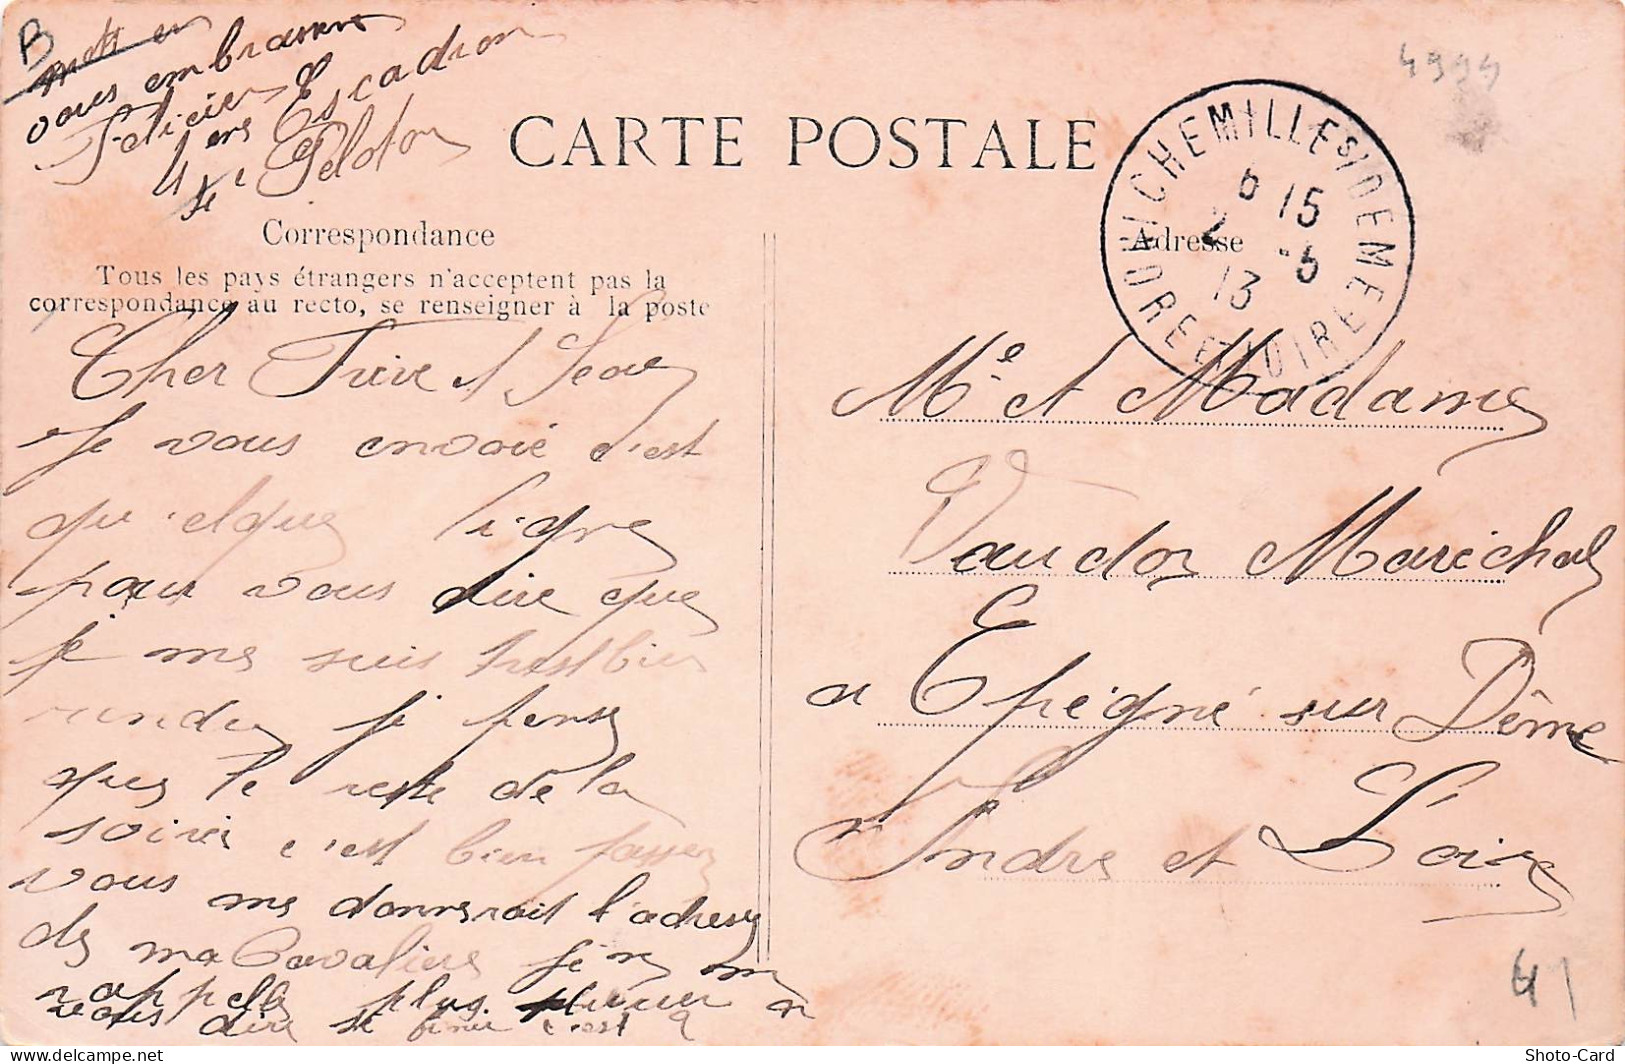 B
vous embrasse
Felicien E
4 em Escadron
Peloton
CARTE POSTALE
Correspondance
Tous les pays étrangers n'acceptent pas la
correspondance au recto, se renseigner à la poste
Cher Frere et Seur
Je vous envoie c'est
qu'elque ligne
pour vous dire que
je me suis trest bien
rendu je pense
que le reste de la
soiree c'est bien passer
vous me donnerait l'adresse
de ma Cavaliere je ne m
rappelle plus
vous dire c'est
4999
CHEMILLE S/ DEME
6 15
2 -5
13
INDRE ET LOIRE
Adresse
Mr et Madame
Vaudor Marechal
a Epeigné sur Dême
Indre et Loire
41
Shoto-Card